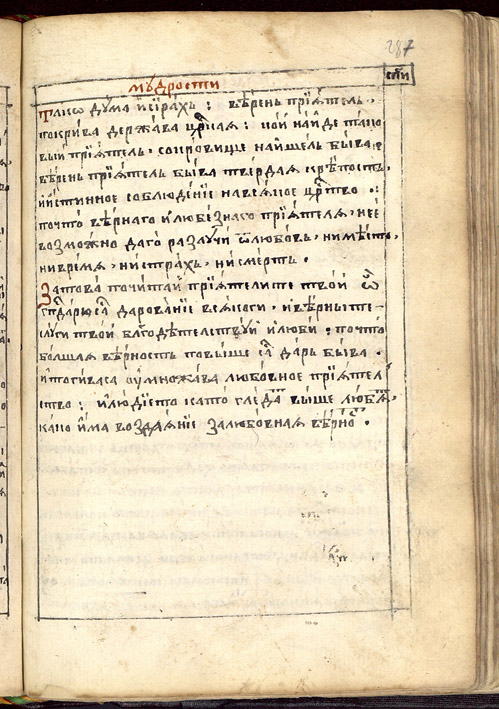 287
спи
мꙋдрости
Тълкѡ дꙋма їсїрахъ : вѣренъ прїѧтель,
покрива держава цр҃каѧ : кой найде тако
вый прїѧтель, сокровище нашель быва :
вѣренъ прїѧтель быва твердаѧ крѣпость,
и истинное соблюденїе на всѧкое цр҃тво .:
почто вѣрнаго и любезнаго прїѧтелѧ, не е
возможно да го разлꙋчи ѿ любовь, ни мѣсто,
ни времѧ, ни страхъ, ни смерть .
Затова почитай прїѧтелите твои ѿ
гпⷭ҇дарюса дарованїе всѧкоги, и вѣрныте
слꙋги твои благодѣтелствꙋй и люби : почто
болшаѧ вѣрность повыше са҃ даръ быва .
и тогиваса оумножава любовное прїѧтел
ство : и людїето като гледа҃ выше любѧ҃,
како има воздаѧнїе за любовнаѧ вѣрно҃ .